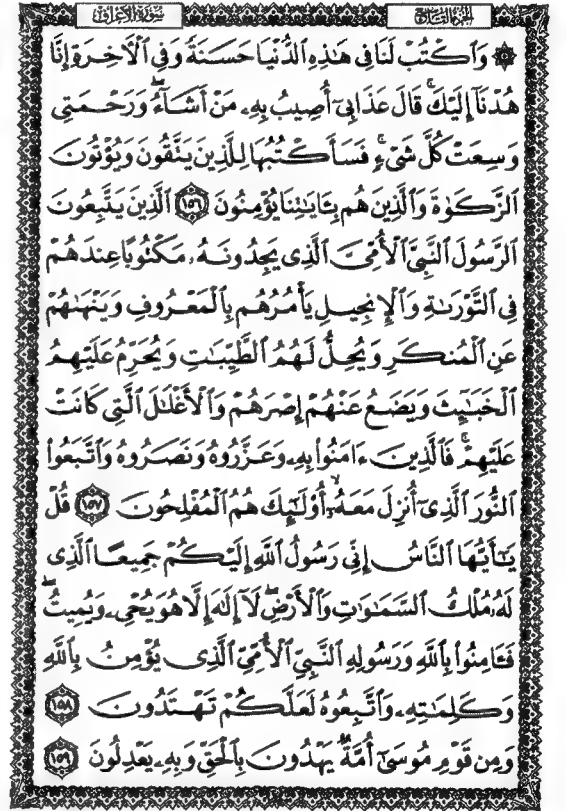 الجزء التاسع
سورة الأعراف
۞ وَٱكْتُبْ لَنَا فِى هَٰذِهِ ٱلدُّنْيَا حَسَنَةً وَفِى ٱلْءَاخِرَةِ إِنَّا
هُدْنَآ إِلَيْكَ ۚ قَالَ عَذَابِىٓ أُصِيبُ بِهِۦ مَنْ أَشَآءُ ۖ وَرَحْمَتِى
وَسِعَتْ كُلَّ شَىْءٍ ۚ فَسَأَكْتُبُهَا لِلَّذِينَ يَتَّقُونَ وَيُؤْتُونَ
ٱلزَّكَوٰةَ وَٱلَّذِينَ هُم بِـَٔايَٰتِنَا يُؤْمِنُونَ ١٥٦ ٱلَّذِينَ يَتَّبِعُونَ
ٱلرَّسُولَ ٱلنَّبِىَّ ٱلْأُمِّىَّ ٱلَّذِى يَجِدُونَهُۥ مَكْتُوبًا عِندَهُمْ
فِى ٱلتَّوْرَىٰةِ وَٱلْإِنجِيلِ يَأْمُرُهُم بِٱلْمَعْرُوفِ وَيَنْهَىٰهُمْ
عَنِ ٱلْمُنكَرِ وَيُحِلُّ لَهُمُ ٱلطَّيِّبَٰتِ وَيُحَرِّمُ عَلَيْهِمُ
ٱلْخَبَٰٓئِثَ وَيَضَعُ عَنْهُمْ إِصْرَهُمْ وَٱلْأَغْلَٰلَ ٱلَّتِى كَانَتْ
عَلَيْهِمْ ۚ فَٱلَّذِينَ ءَامَنُوا۟ بِهِۦ وَعَزَّرُوهُ وَنَصَرُوهُ وَٱتَّبَعُوا۟
ٱلنُّورَ ٱلَّذِىٓ أُنزِلَ مَعَهُۥٓ ۙ أُو۟لَٰٓئِكَ هُمُ ٱلْمُفْلِحُونَ ١٥٧ قُلْ
يَٰٓأَيُّهَا ٱلنَّاسُ إِنِّى رَسُولُ ٱللَّهِ إِلَيْكُمْ جَمِيعًا ٱلَّذِى
لَهُۥ مُلْكُ ٱلسَّمَٰوَٰتِ وَٱلْأَرْضِ ۖ لَآ إِلَٰهَ إِلَّا هُوَ يُحْىِۦ وَيُمِيتُ ۖ
فَـَٔامِنُوا۟ بِٱللَّهِ وَرَسُولِهِ ٱلنَّبِىِّ ٱلْأُمِّىِّ ٱلَّذِى يُؤْمِنُ بِٱللَّهِ
وَكَلِمَٰتِهِۦ وَٱتَّبِعُوهُ لَعَلَّكُمْ تَهْتَدُونَ ١٥٨
وَمِن قَوْمِ مُوسَىٰٓ أُمَّةٌ يَهْدُونَ بِٱلْحَقِّ وَبِهِۦ يَعْدِلُونَ ١٥٩